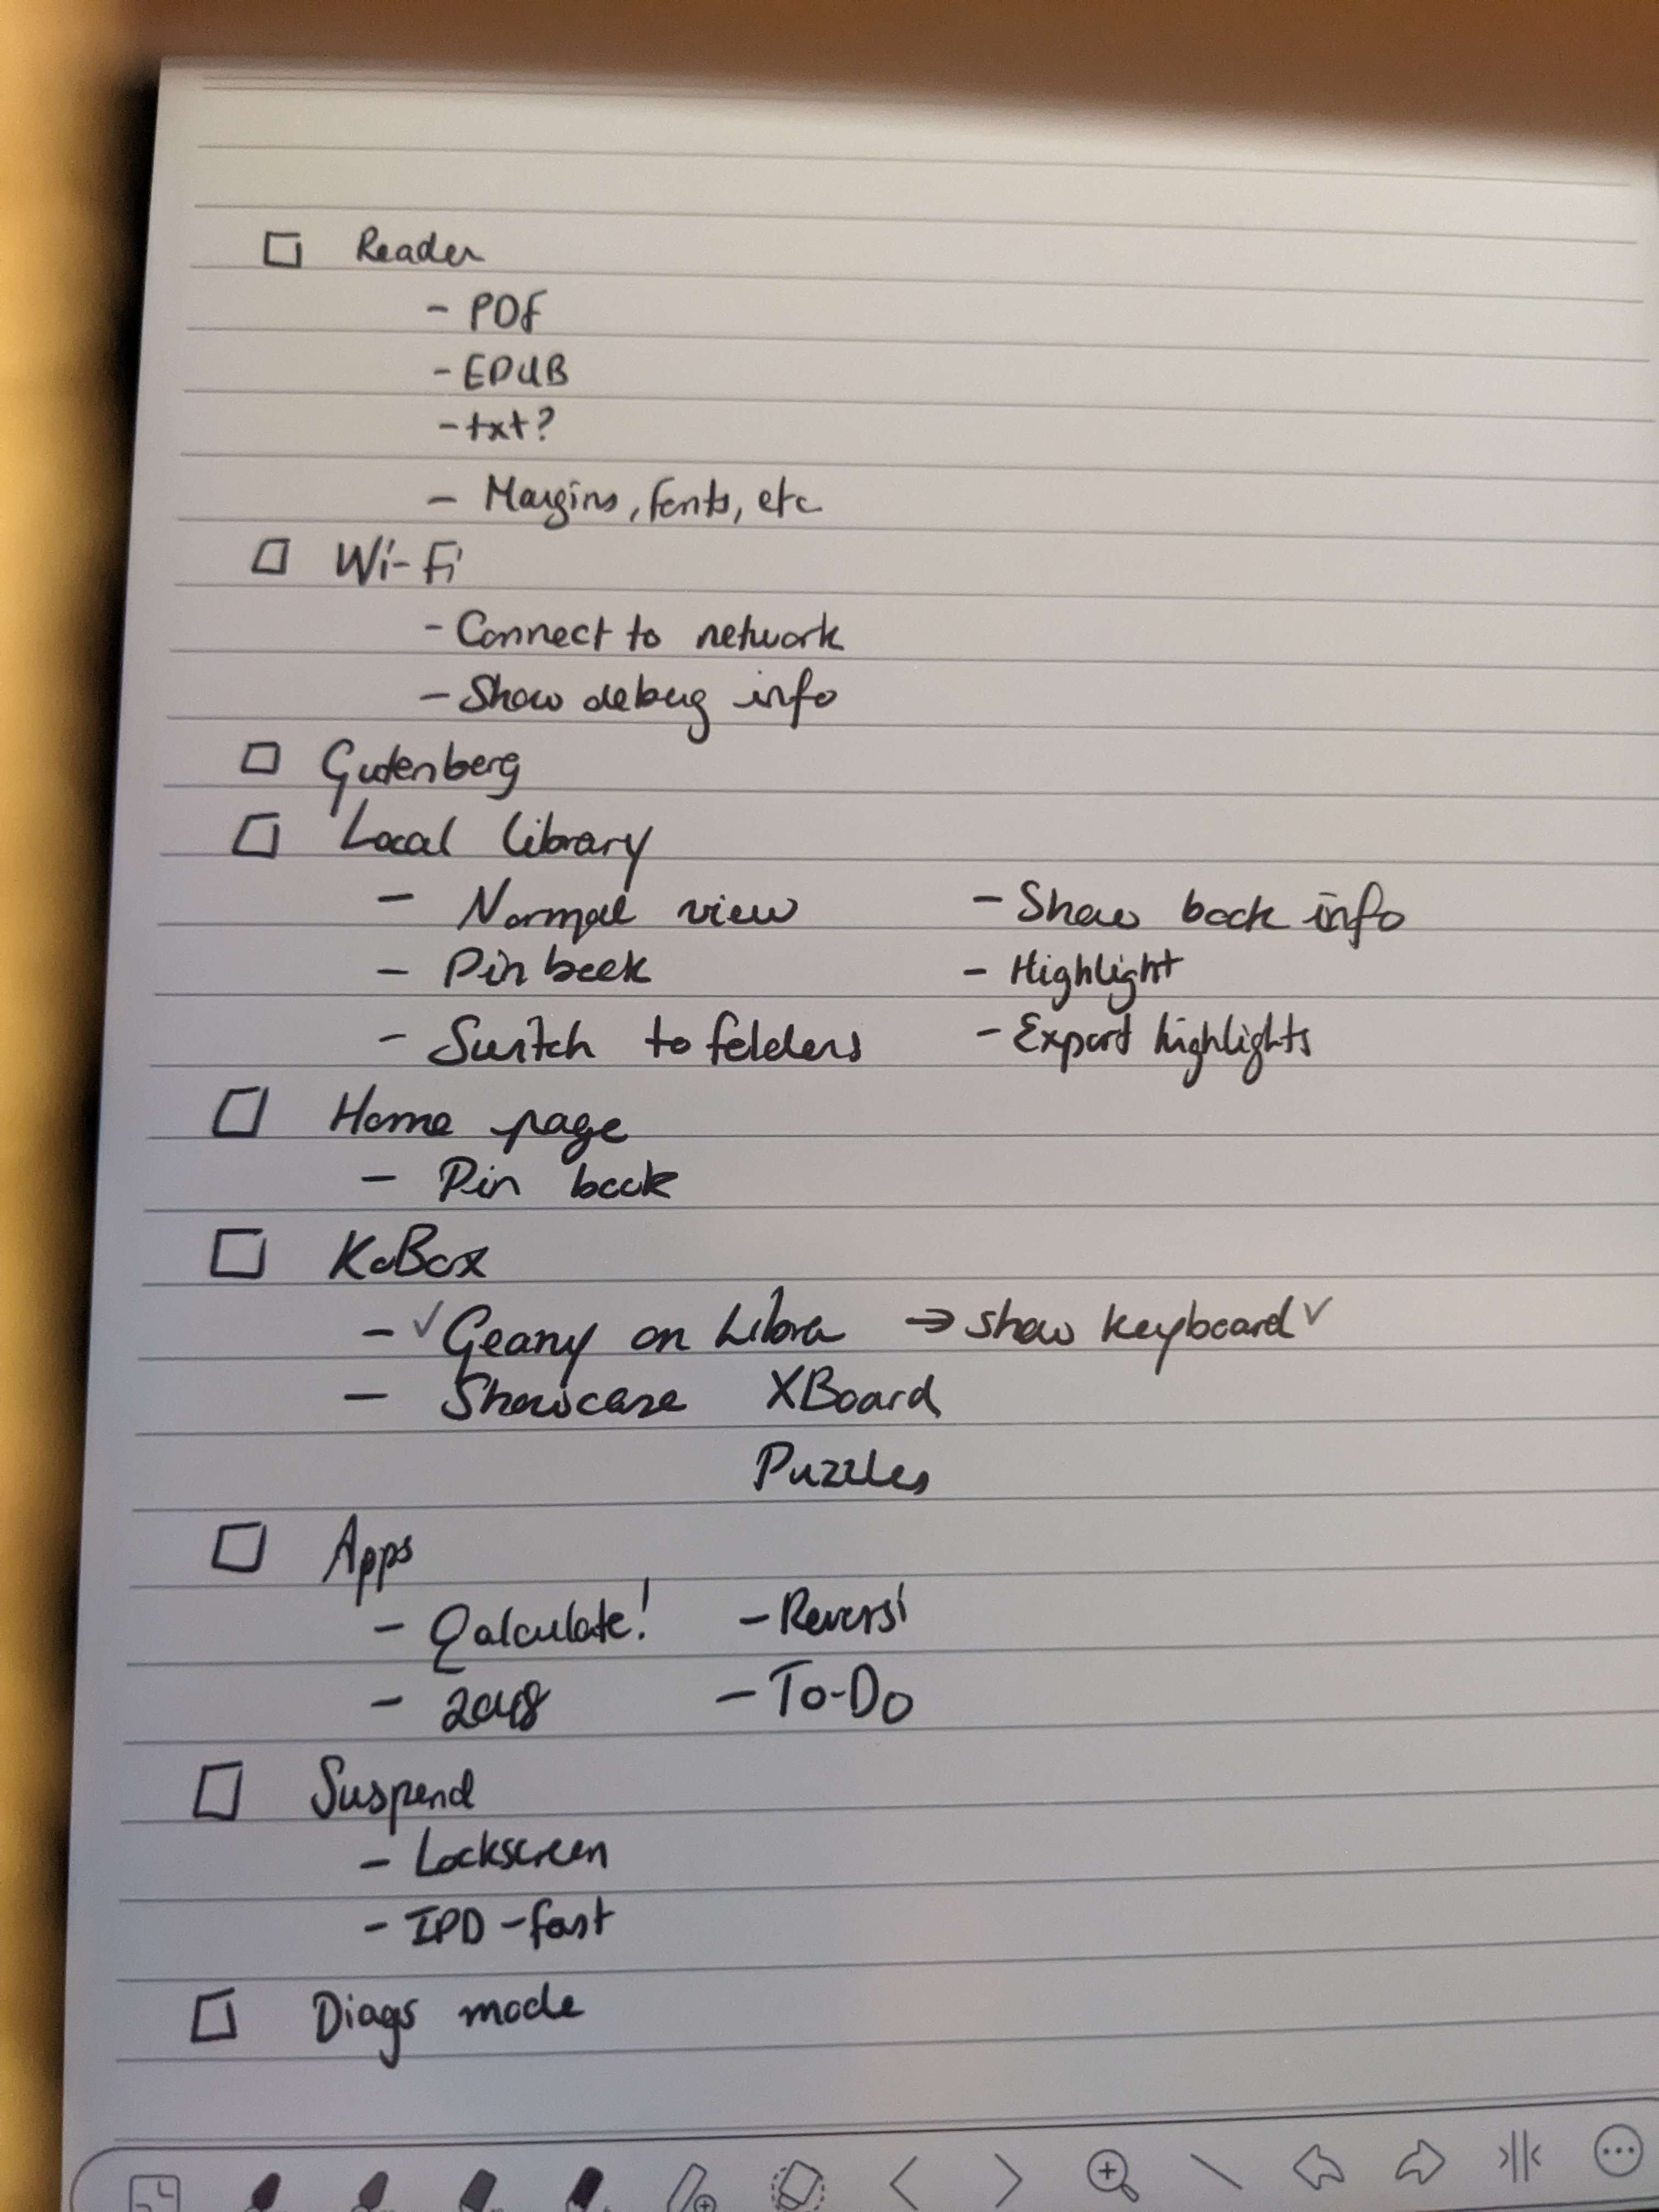 Reader
- PDF
- EPUB
- txt?
- Margins, fonts, etc
Wi-Fi
- Connect to network
- Show debug info
Gutenberg
Local library
- Normal view - Show book info
- Pin book - Highlight
- Switch to folders - Export highlights
Home page
- Pin book
KoBox
- ✓ Geany on Libra → show keyboard ✓
- Showcase XBoard
Puzzles
Apps
- Qalculate! - Reversi
- 2048 - To-Do
Suspend
- Lockscreen
- IPD - fast
Diags mode